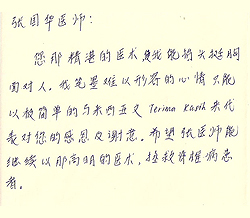 张国华医师：
您那精湛的医术是我能够抬头挺胸
面对人。我笔墨难以形容的心情只能
以最简单的马来西亚文 Terima Kasih 来代
表对您的感恩及谢意。希望张医师能
继续以那高明的医术，拯救脊椎病患
者。